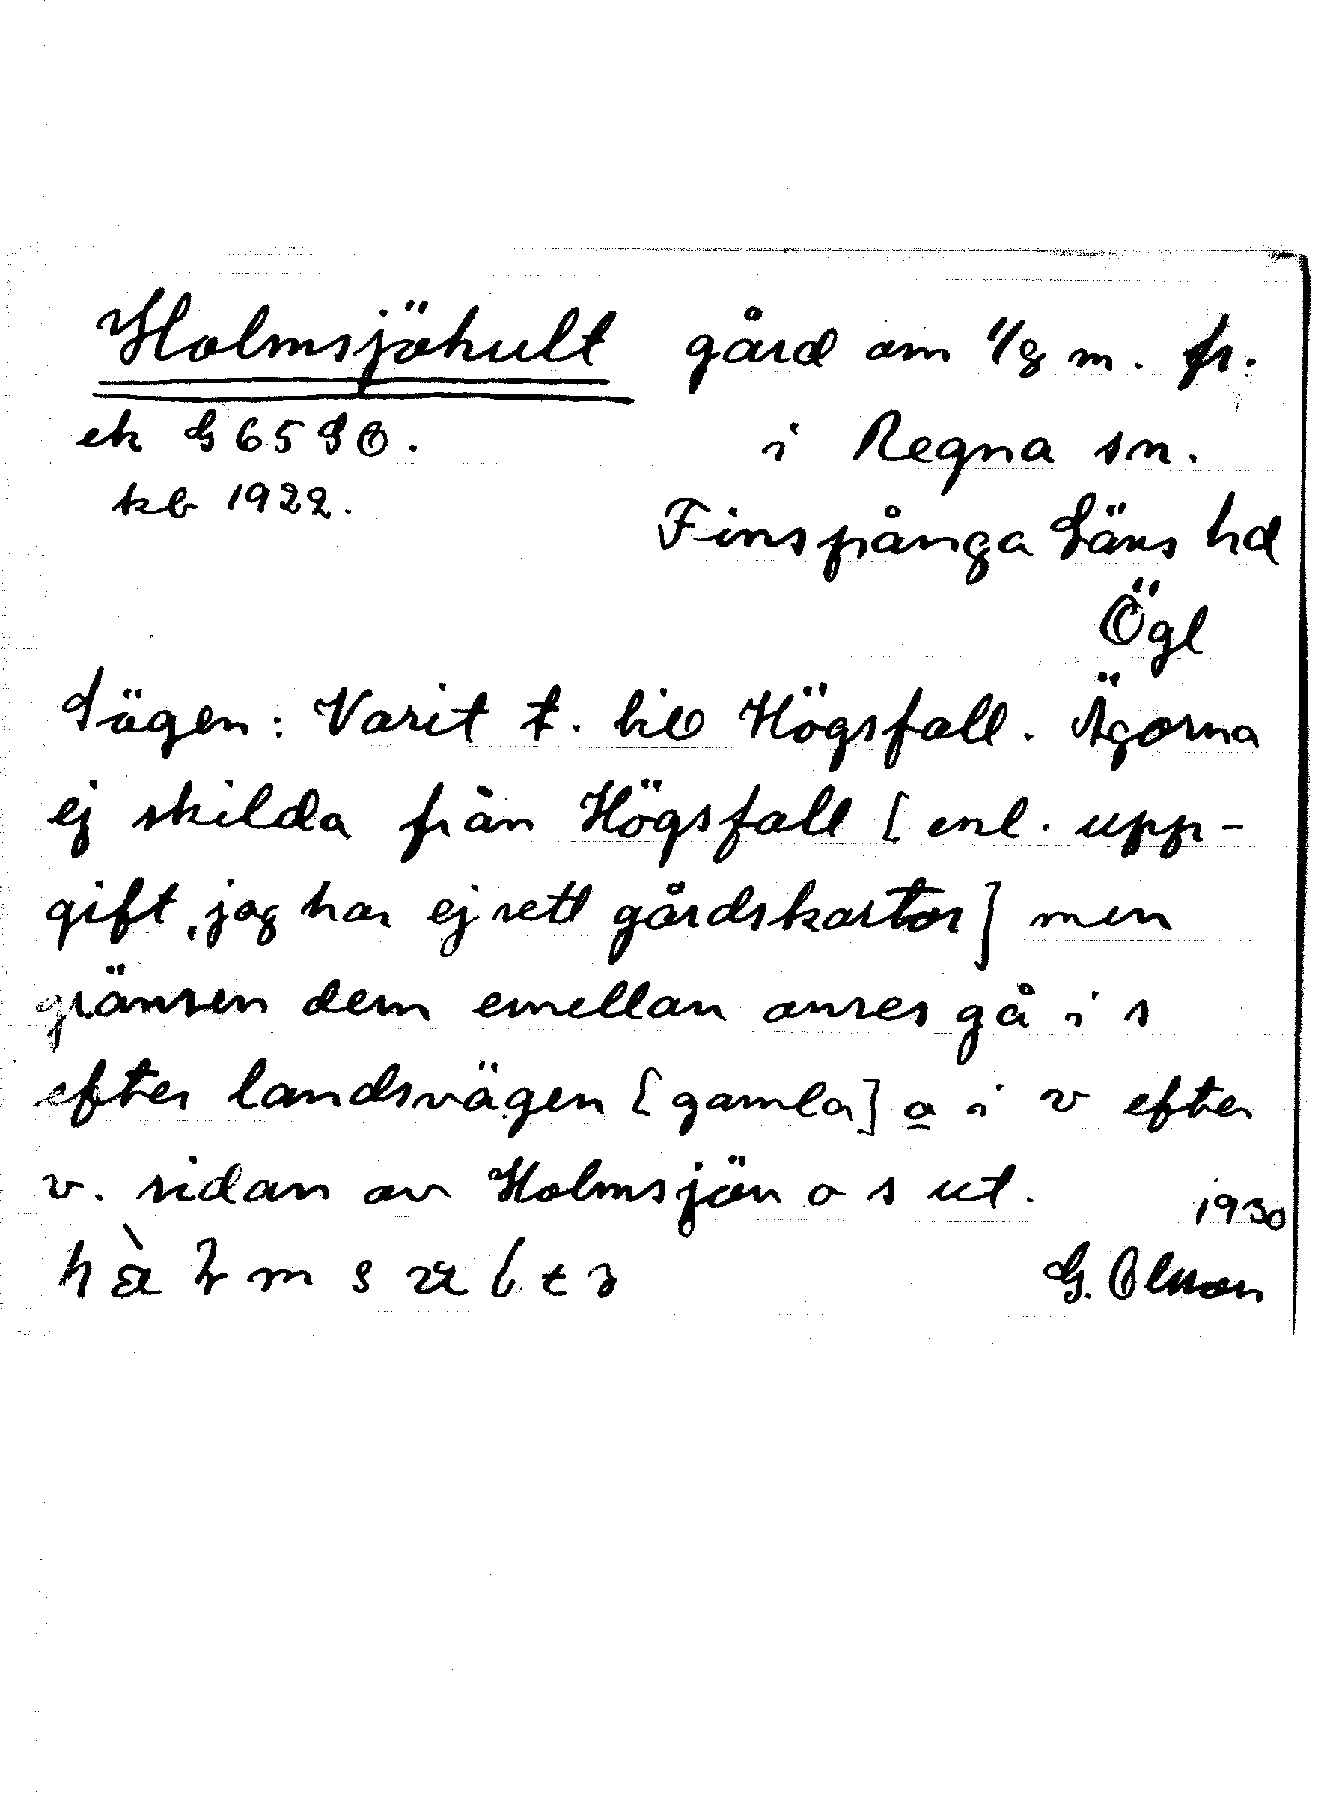 Holmsjöhult gård om 1/8 m. fr.
ek G 65 SO. i Regna sn.
kb 1922. Finspånga Läns hd
Ögl
Sägen: Varit t. till Högsfall. Ägorna
ej skilda från Högsfall [enl. upp-
gift, jag har ej sett gårdskartor] men
gränsen dem emellan anses gå i s
efter landsvägen [gamla] o i v efter
v. sidan av Holmsjön o s ut.
1930
G. Olsson